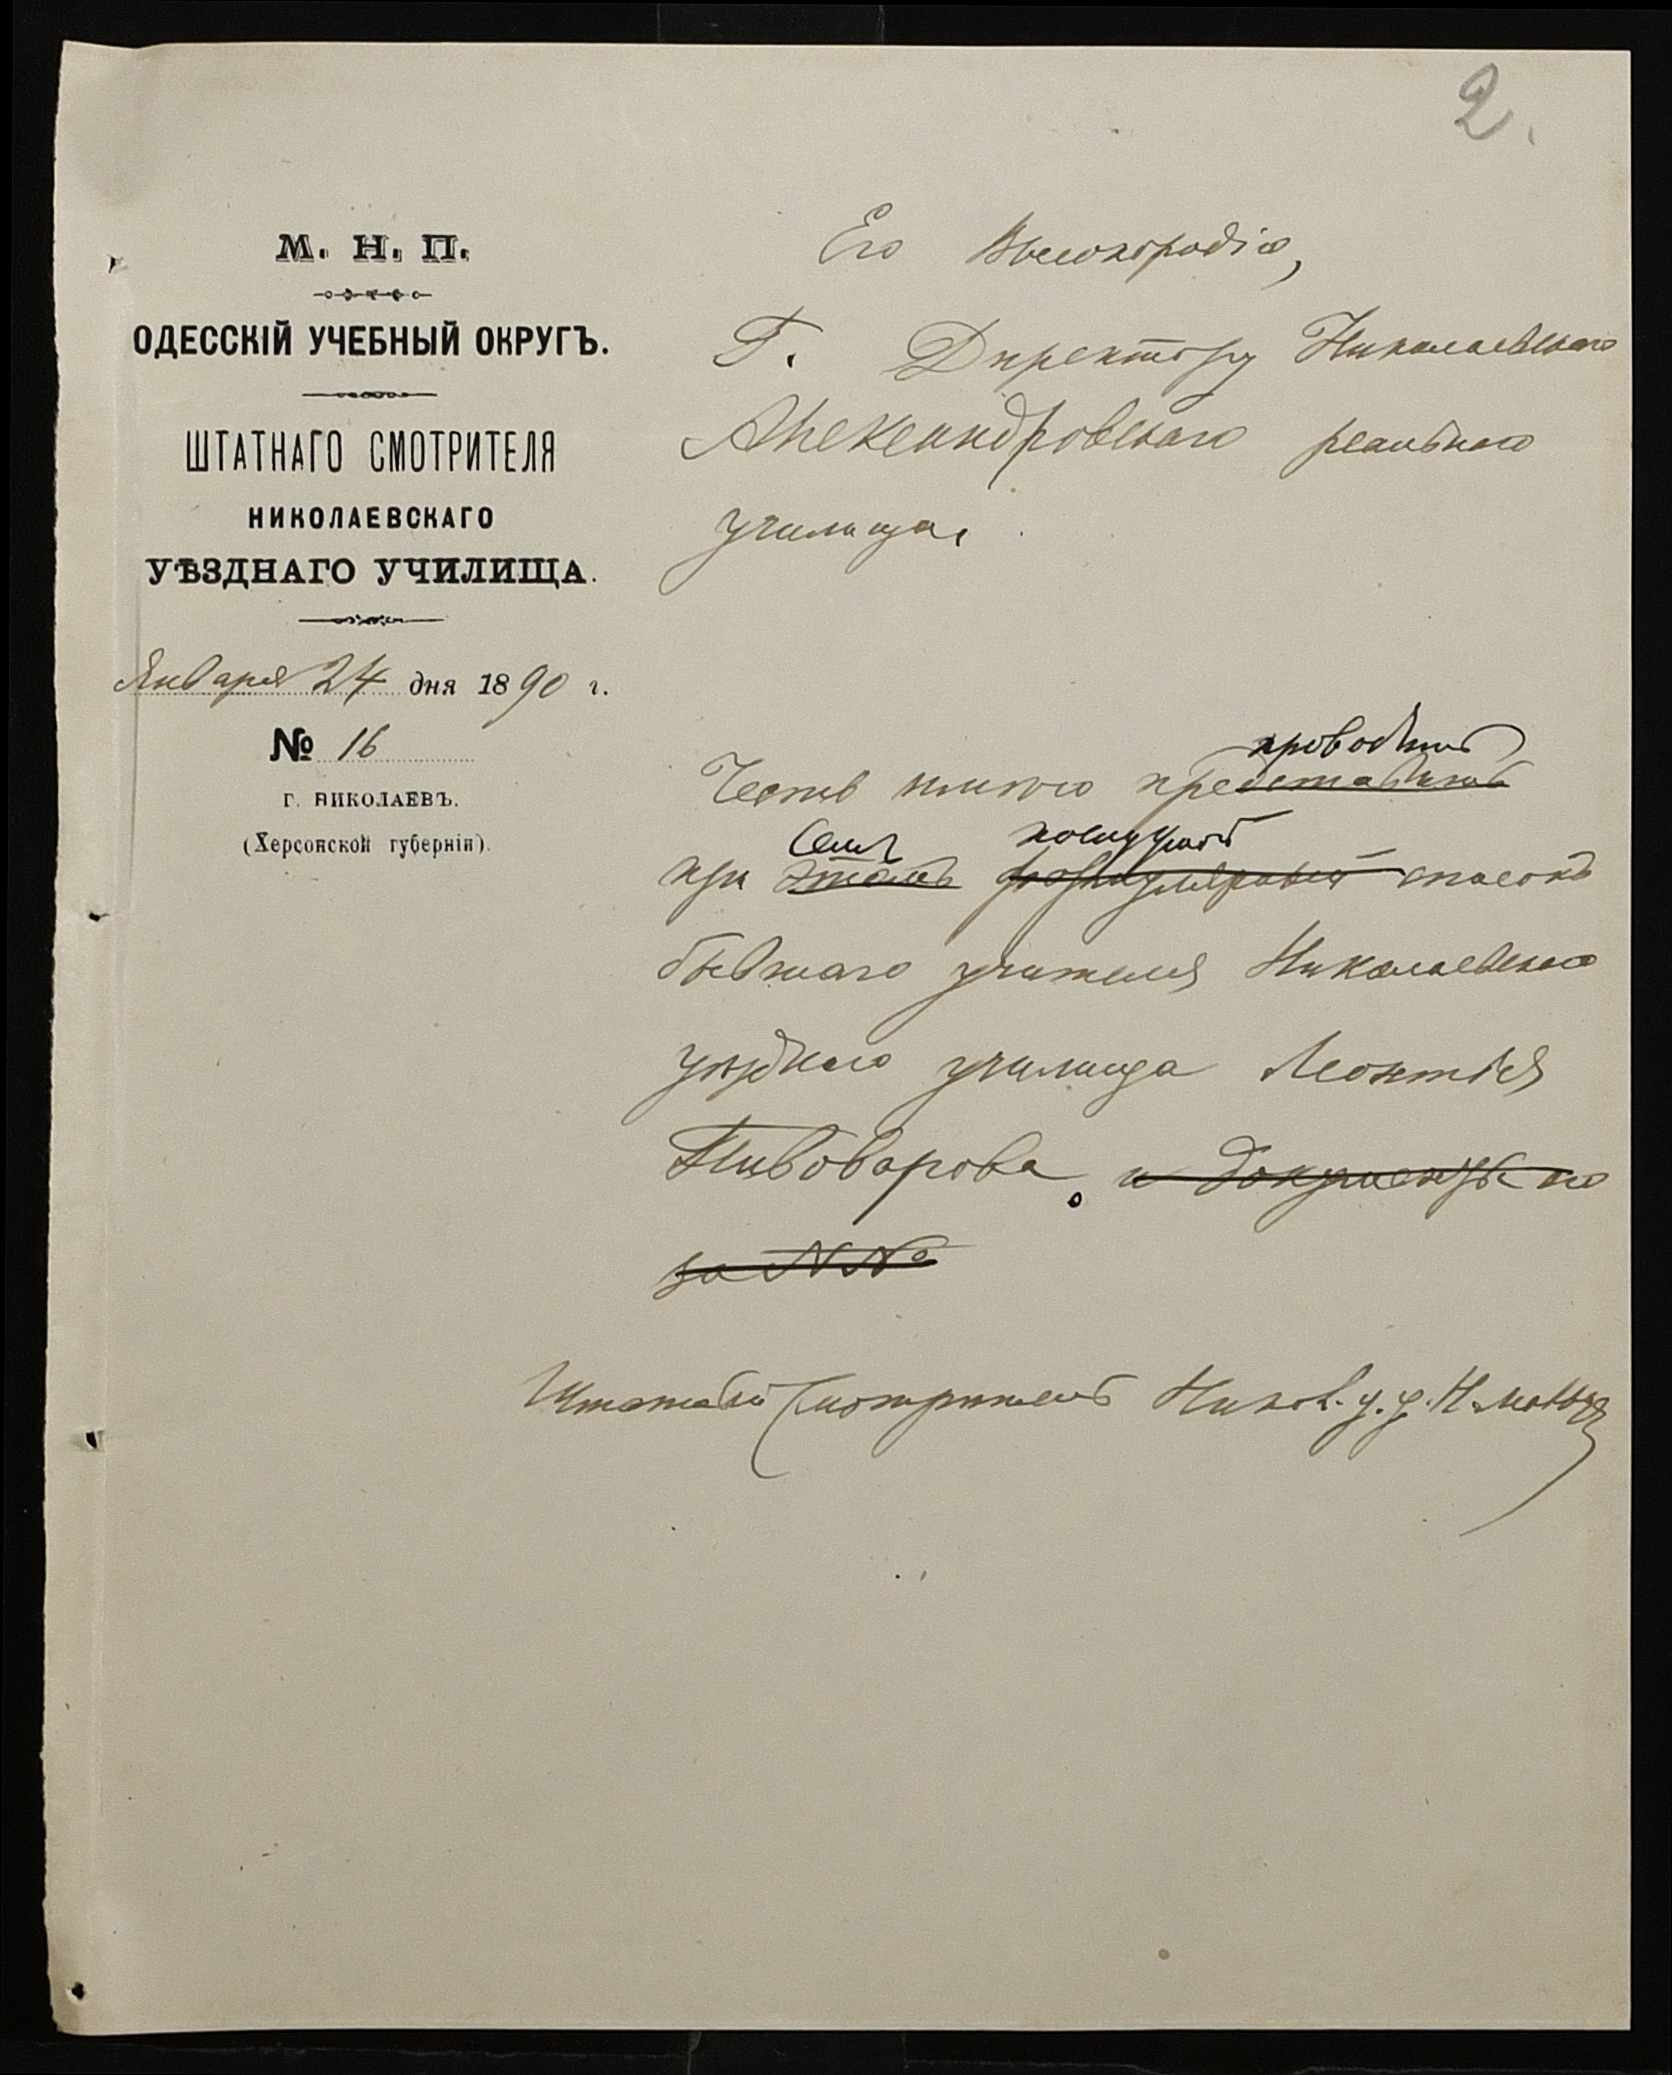 2.
М. Н. П.
ОДЕССКІЙ УЧЕБНЫЙ ОКРУГЪ.
ШТАТНАГО СМОТРИТЕЛЯ
НИКОЛАЕВСКАГО
УѢЗДНАГО УЧИЛИЩА.
Января 24 дня 1890 г.
№ 16
Г. НИКОЛАЕВЪ.
(Херсонской губерніи).
Его Высокородію,
Г. Директору Николаевскаго
Александровскаго реальнаго
училища.
Честь имѣю представить
при этомъ формулярный списокъ
бывшаго учителя Николаевскаго
уѣзднаго училища Леонтія
Пивоварова. и документы его
за №№
Штатный Смотритель Никол. у. у.